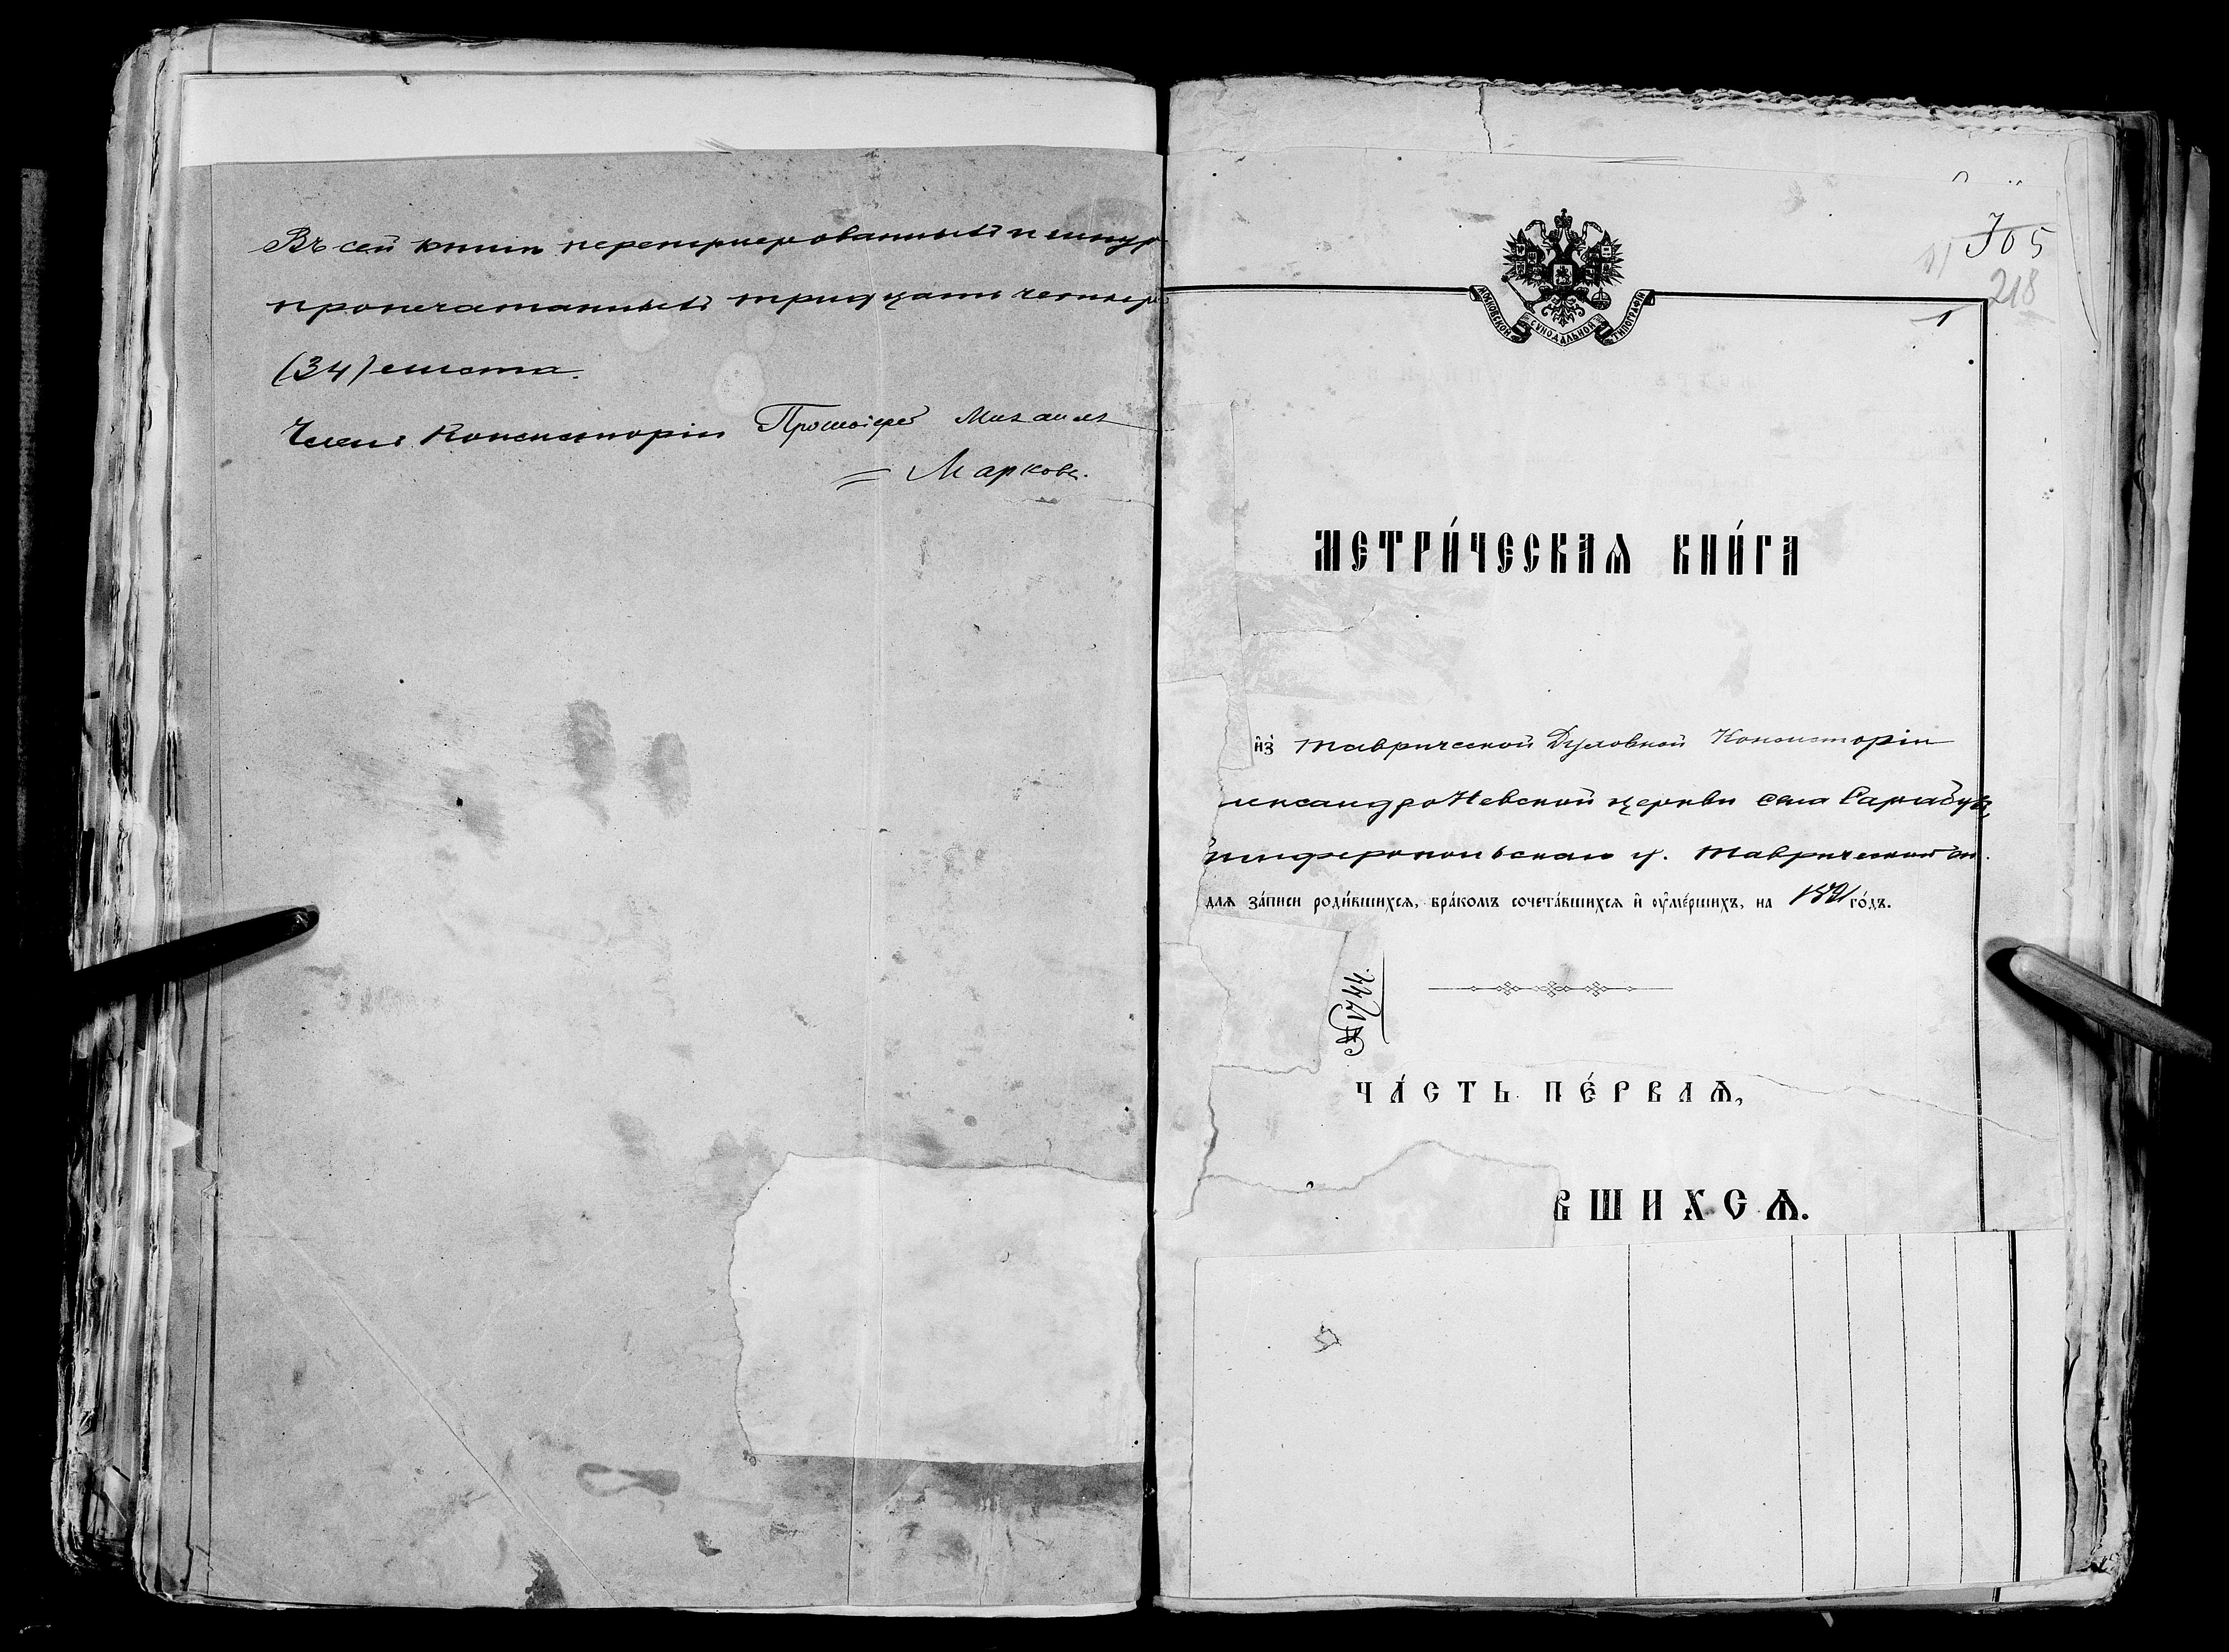 Въ сей книгѣ перенумерованныхъ и шнур
пропечатанныхъ тридцать четыре
(34) листа.
Членъ Консисторіи Протоіерей Михаилъ
Марковъ.
305
218
1
МОСКОВСКОЙ СѴНОДАЛЬНОЙ ТИПОГРАФІИ
МЕТРИ́ЧЕСКАѦ КНИ́ГА
и҆з̾ Таврической Духовной Консисторіи
лександроНевской церкви села Сарабузъ
имферопольскаго у. Таврической еп.
длѧ за́писи роди́вшихсѧ, бра́комъ сочета́вшихсѧ и҆ ᲂу҆ме́ршихъ, на 1891 го́дъ.
№ 1744.
ЧА́СТЬ ПЕ́РВАѦ,
ВШИХСѦ.